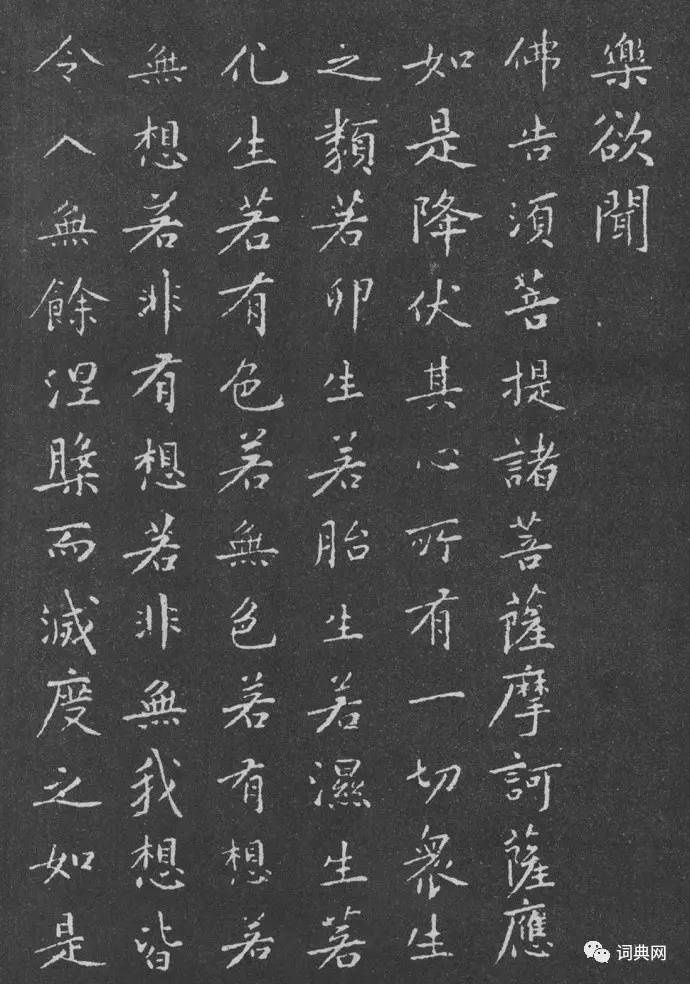 樂欲聞
佛告須菩提諸菩薩摩訶薩應
如是降伏其心所有一切衆生
之類若卵生若胎生若濕生若
化生若有色若無色若有想若
無想若非有想若非無我想皆
令入無餘涅槃而滅度之如是
词典网